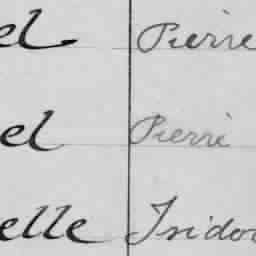 el Pierre
el Pierre
elle Isido